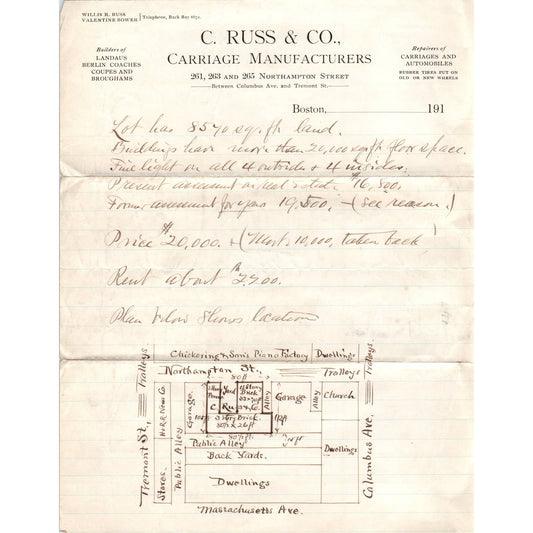 WILLIS R. RUSS
VALENTINE BOWER
Telephone, Back Bay
C. RUSS & CO.,
CARRIAGE MANUFACTURERS
261, 263 AND 265 NORTHAMPTON STREET
Between Columbus Ave. and Tremont St.
Builders of
LANDAUS
BERLIN COACHES
COUPES AND
BROUGHAMS
Repairers of
CARRIAGES AND
AUTOMOBILES
RUBBER TIRES PUT ON
OLD OR NEW WHEELS
Boston, 191
Lot has 8570 sq. ft. land.
Buildings have more than 20,000 sq ft floor space.
Fine light on all 4 outsides + 4 insides.
Present assessment on real estate $16,800.
Former assessment for years 19,500. - (see reason.)
Price $20,000. + (Mort. 10,000, taken back)
Rent about $2,200.
Plan below shows location
Chickering & Sons Piano Factory
Dwellings
Trolleys
Trolleys
Northampton St.,
Trolleys
80 ft
Garage.
Yard
Brick
Alley
Garage
Alley
Church
C. Russ & Co.
Brick
Public Alley
Dwellings
Back Yards.
Dwellings
Tremont St,
Stores.
Public Alley
Columbus Ave,
Massachusetts Ave.